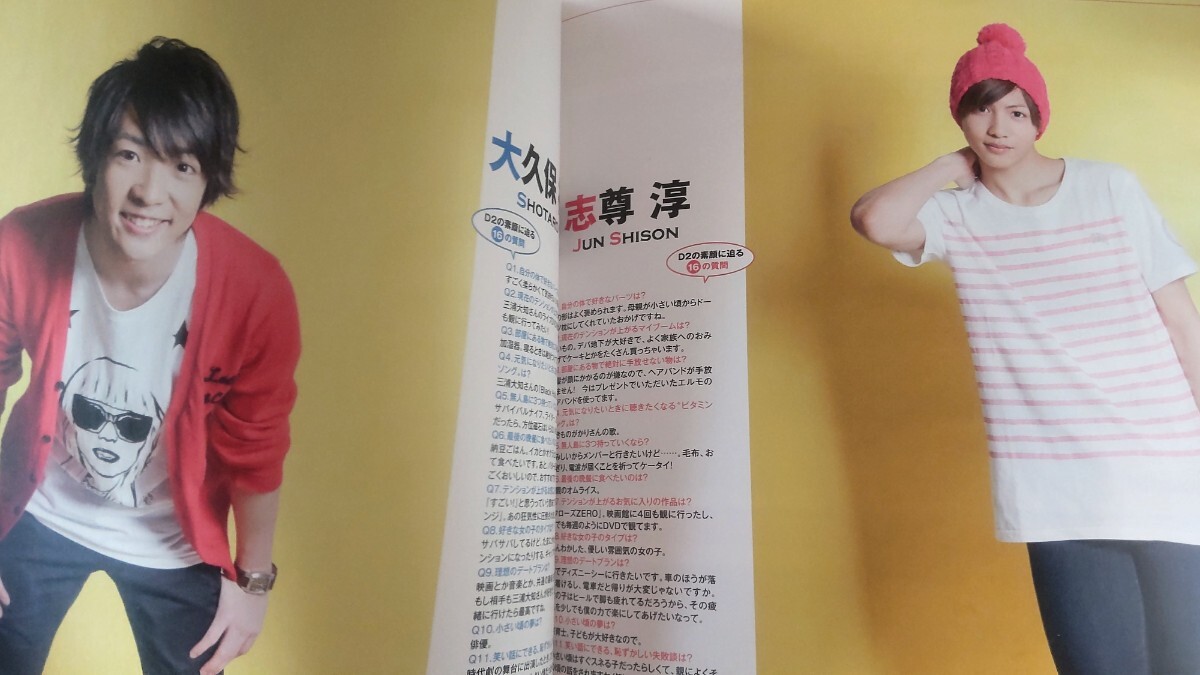 大久保
SHOTAR
D2の素顔に迫る
16の質問
Q1.自分の体で好き
すごく柔らかくて
Q2.現在のテンション
三浦大知さんのライ
も観に行ってみたい
Q3.部屋にある物で
加湿器。寝るときは
Q4.元気になりたい
ソング”は?
三浦大知さんの「Black
Q5.無人島に3つ持って
サバイバルナイフ、ライ
だったら、方位磁石
Q6.最後の晩餐に食べ
納豆ごはん。イカとか
て食べたいです。あと
ごくおいしいので、
Q7.テンションが上がる
「すごい!」と思うってい
ンジ』。あの狂気性に
Q8.好きな女の子のタイプ
サバサバしてるけど、たまに
ンションになったりする、
Q9.理想のデートプランは
映画とか音楽とか、共通の
もし相手も三浦大知さんが
緒に行けたら最高ですね。
Q10.小さい頃の夢は?
俳優。
Q11.笑い話にできる、恥ずかし
時代劇の舞台に出演した
志尊 淳
JUN SHISON
D2の素顔に迫る
16の質問
自分の体で好きなパーツは?
の形はよく褒められます。母親が小さい頃からドー
枕にしてくれていたおかげですね。
現在のテンションが上がるマイブームは?
いもの。デパ地下が大好きで、よく家族へのおみ
でケーキとかをたくさん買っちゃいます。
部屋にある物で絶対に手放せない物は?
が顔にかかるのが嫌なので、ヘアバンドが手放
ません! 今はプレゼントでいただいたエルモの
アバンドを使ってます。
元気になりたいときに聴きたくなる“ビタミン
ング”は?
きものがかりさんの歌。
無人島に3つ持っていくなら?
みしいからメンバーと行きたいけど……。毛布、お
ぎり、電波が届くことを祈ってケータイ!
最後の晩餐に食べたいのは?
のオムライス。
テンションが上がるお気に入りの作品は?
ローズZERO』。映画館に4回も観に行ったし、
でも毎週のようにDVDで観てます。
好きな女の子のタイプは?
んわかした、優しい雰囲気の女の子。
理想のデートプランは?
でディズニーシーに行きたいです。車のほうが落
着けるし、電車だと帰りが大変じゃないですか。
の子はヒールで脚も疲れてるだろうから、その疲
を少しでも僕の力で楽にしてあげたいなって。
10.小さい頃の夢は?
士。子どもが大好きなので。
11.笑い話にできる、恥ずかしい失敗談は?
さい頃はすぐスネる子だったらしくて、親によくそ